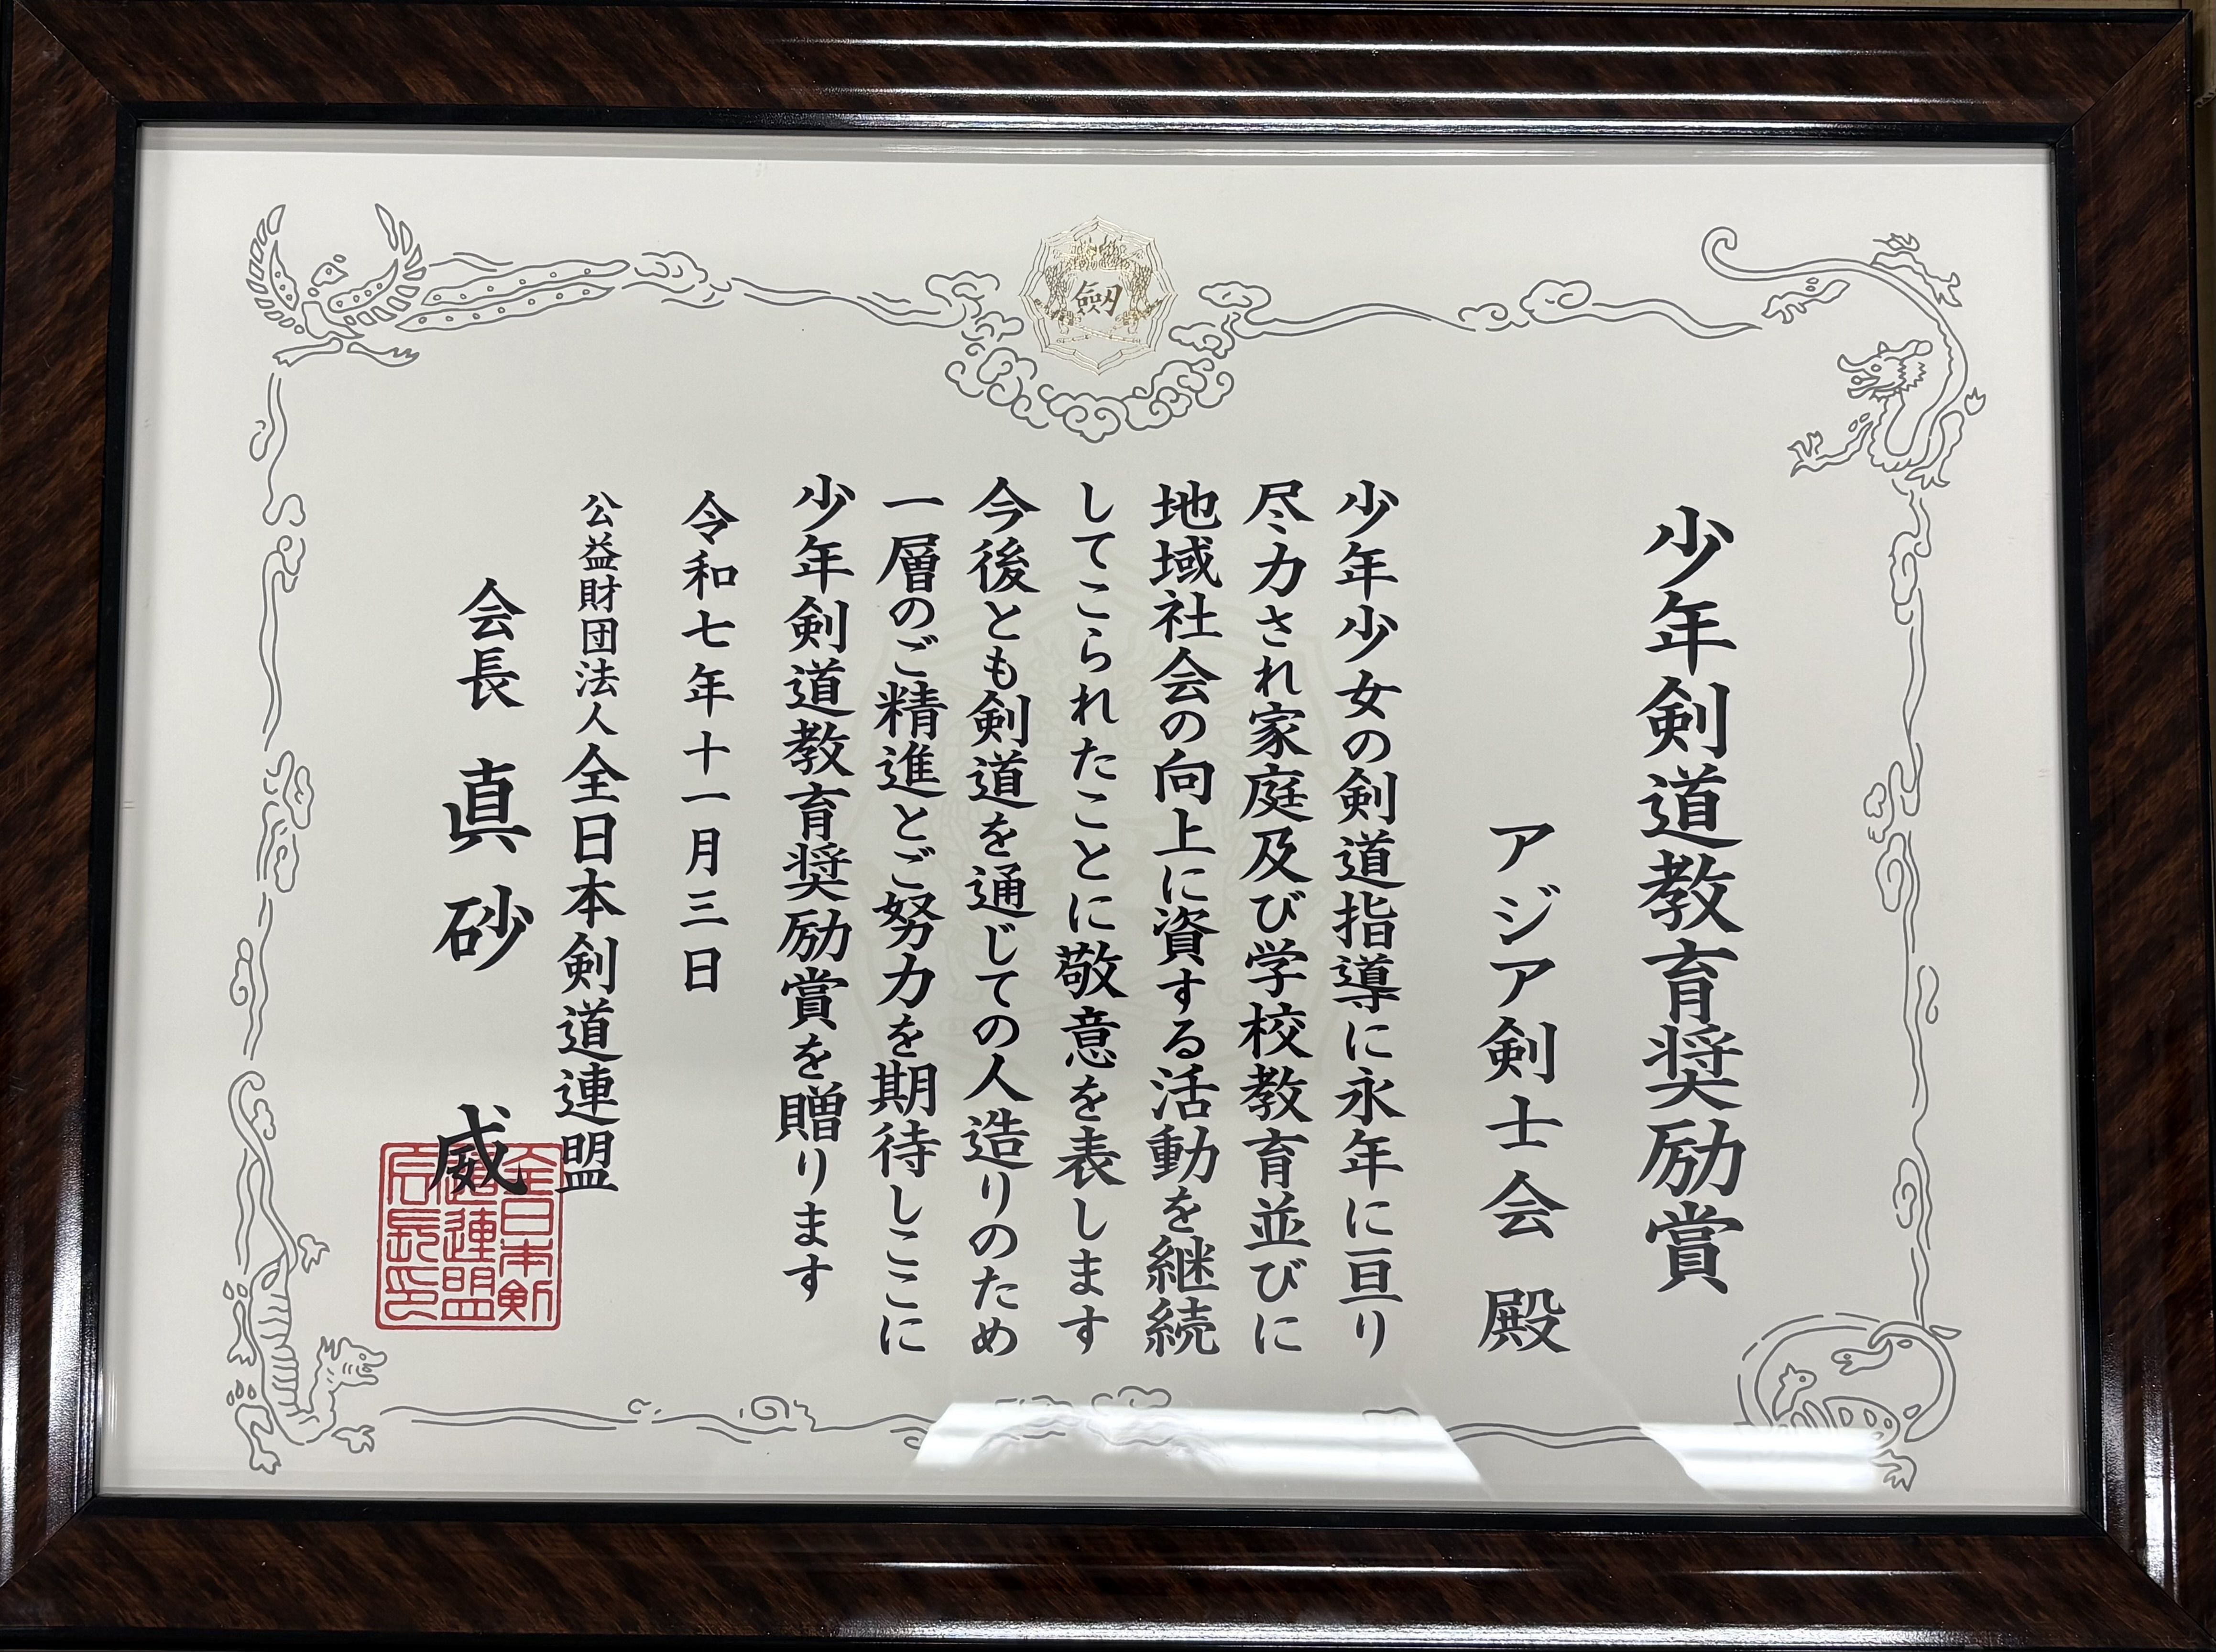 劔
少年剣道教育奨励賞
アジア剣士会 殿
少年少女の剣道指導に永年に亘り
尽力され家庭及び学校教育並びに
地域社会の向上に資する活動を継続
してこられたことに敬意を表します
今後とも剣道を通じての人造りのため
一層のご精進とご努力を期待しここに
少年剣道教育奨励賞を贈ります
令和七年十一月三日
公益財団法人全日本剣道連盟
会長 真砂 威
全日本剣
道連盟
会長印